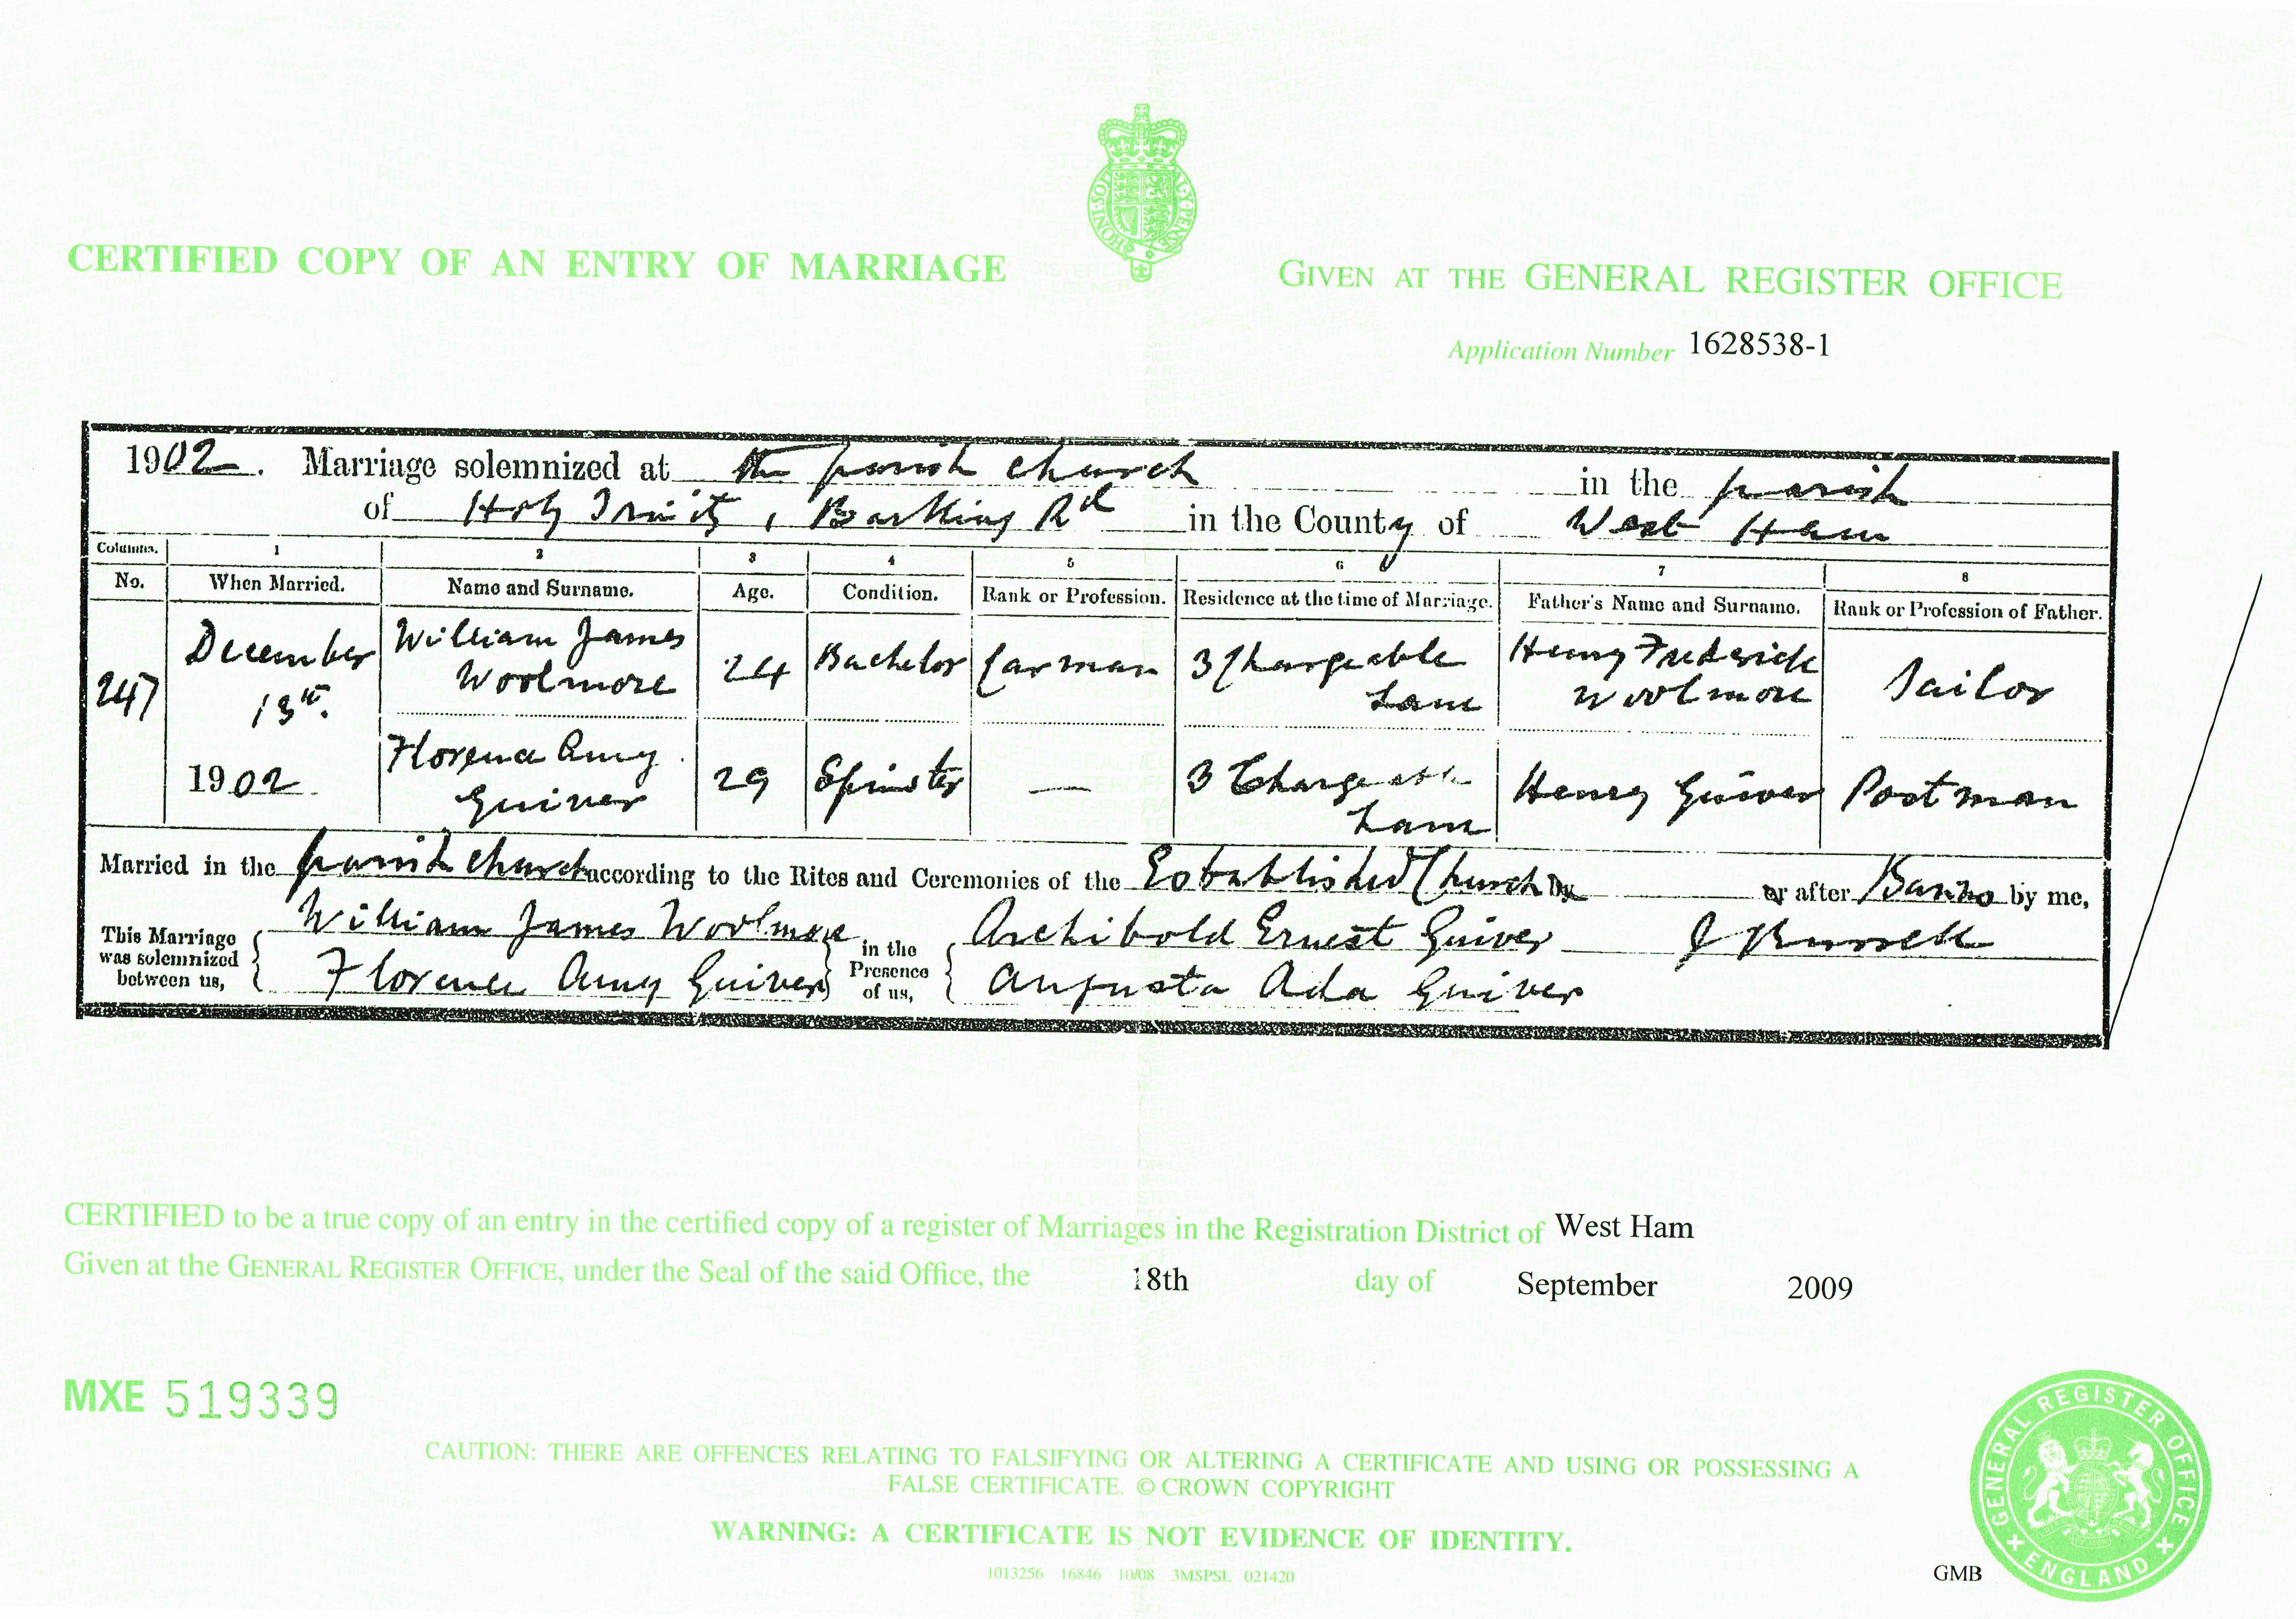 HONI·SOIT
AL·Y·PENSE
CERTIFIED COPY OF AN ENTRY OF MARRIAGE
GIVEN AT THE GENERAL REGISTER OFFICE
Application Number 1628538-1
1902. Marriage solemnized at the parish church in the parish
of Holy Trinity, Barking Rd in the County of West Ham
Columns. 1 2 3 4 5 6 7 8
No. When Married. Name and Surname. Age. Condition. Rank or Profession. Residence at the time of Marriage. Father's Name and Surname. Rank or Profession of Father.
247 December 13th. 1902
William James Woolmore 24 Bachelor Carman 3 Chargeable Lane Henry Frederick Woolmore Sailor
Florence Amy Guiver 29 Spinster — 3 Chargeable Lane Henry Guiver Postman
Married in the parish church according to the Rites and Ceremonies of the Established Church by or after Banns by me,
This Marriage was solemnized between us, { William James Woolmore } in the Presence of us, { Archibold Ernest Guiver J Russell
Florence Amy Guiver Augusta Ada Guiver
CERTIFIED to be a true copy of an entry in the certified copy of a register of Marriages in the Registration District of West Ham
Given at the GENERAL REGISTER OFFICE, under the Seal of the said Office, the 18th day of September 2009
MXE 519339
CAUTION: THERE ARE OFFENCES RELATING TO FALSIFYING OR ALTERING A CERTIFICATE AND USING OR POSSESSING A
FALSE CERTIFICATE. © CROWN COPYRIGHT
WARNING: A CERTIFICATE IS NOT EVIDENCE OF IDENTITY.
1013256 16846 10/08 3MSPSL 021420
GMB
GENERAL REGISTER OFFICE
ENGLAND